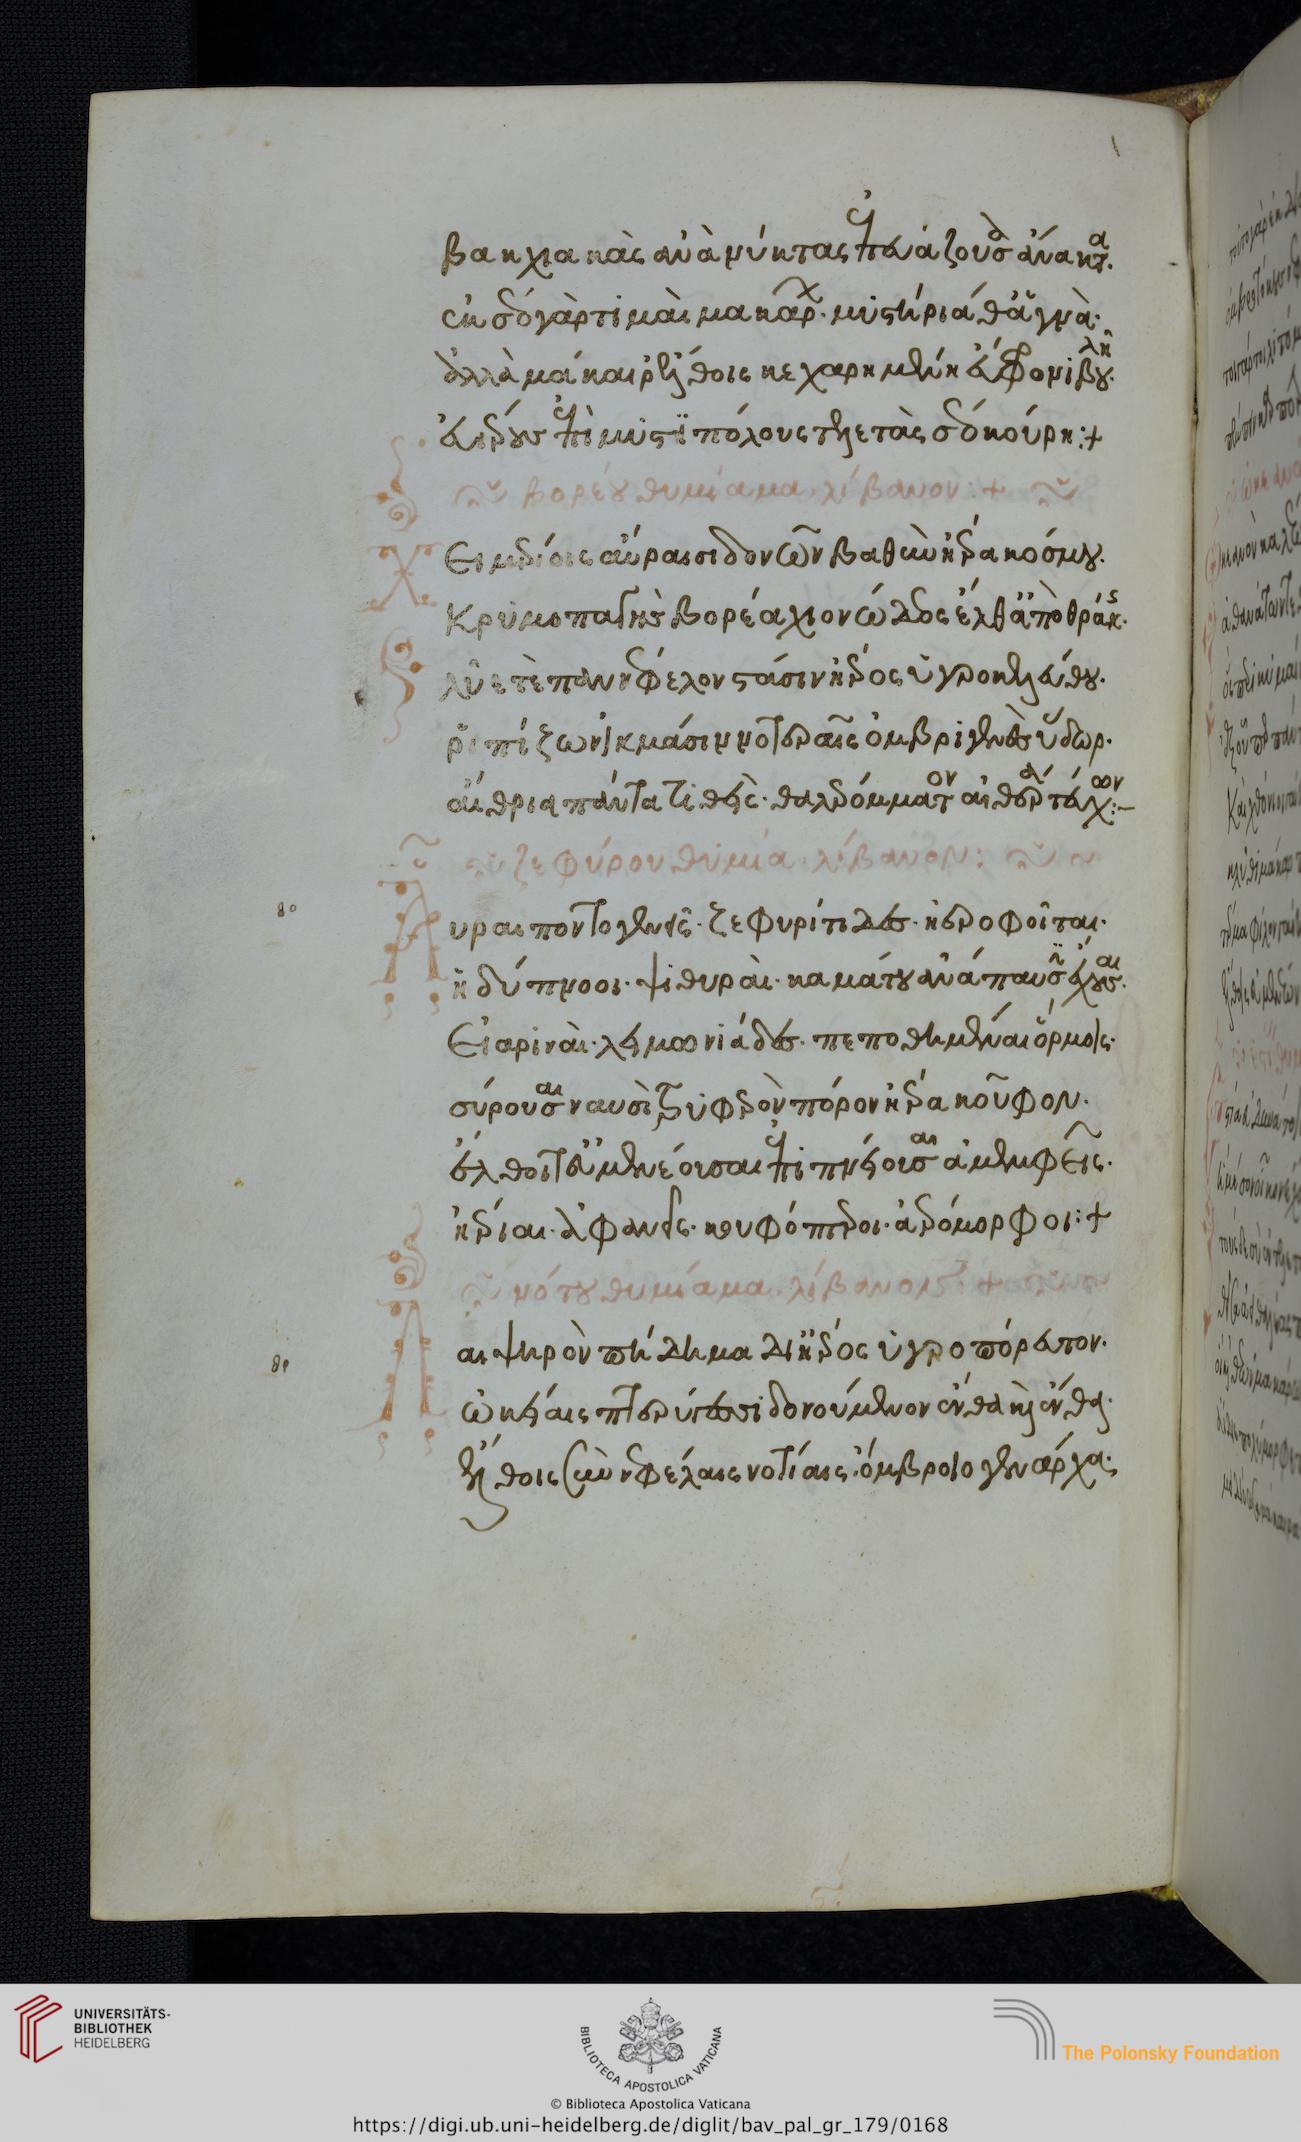 βακχιακὰς ἀνὰ νύκτας ἐπευάζουσὰ ἄνακτα.
ἐκ σέο γὰρ τιμαὶ μακάρων. μυστήριά θ' ἁγνὰ.
ἀλλὰ μάκαιρ' ἔλθοις κεχαρημένη εὔφρονι βουλῆ.
εὐιέρους ἐπὶ μυστιπόλους τελετὰς σέο κούρη:+
βορέου θυμίαμα. λίβανον:+
Χειμερίοις αὔραισι δονῶν βαθὺν ἠέρα κόσμου.
Κρυμοπαγὴς βορέα χιονώδεος ἔλθ' ἀπὸ θράκης.
λῦε τὲ παννέφελον στάσιν ἠέρος ὑγροκελεύθου.
ῥιπίζων ἰκμάσιν νοτεραῖς ὀμβριγενὲς ὕδωρ.
αἴθρια πάντα τιθεὶς. θαλερόμματον αἰθέρα τεύχων:-
ζεφύρου θυμία. λίβανον:
Αυραι ποντογενεῖς. ζεφυρίτιδες. ἠεροφοῖται.
ἡδύπνοοι. ψιθυραὶ. καμάτου ἀνάπαυσιν ἔχουσαι.
Εἰαριναὶ. λειμωνιάδες. πεποθημέναι ὅρμοις.
σύρουσαι ναυσὶ τρυφερὸν πόρον ἠέρα κοῦφον.
ἔλθοιτ' εὐμενέουσαι ἐπιπνείουσαι ἀμεμφεῖς.
ἠέριαι. ἀφανεῖς. κουφόπτεροι. ἀερόμορφοι:+
νότου θυμίαμα. λίβανον: +
Λαιψηρὸν πήδημα δι' ἠέρος ὑγροπόρευτον.
ὠκείαις πτερύγεσσι δονούμενον ἔνθα καὶ ἔνθα.
ἔλθοις σὺν νεφέλαις νοτίαις. ὄμβροιο γενάρχα.
UNIVERSITÄTS-
BIBLIOTHEK
HEIDELBERG
BIBLIOTECA APOSTOLICA VATICANA
The Polonsky Foundation
© Biblioteca Apostolica Vaticana
https://digi.ub.uni-heidelberg.de/diglit/bav_pal_gr_179/0168